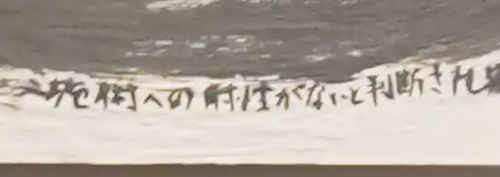 砲術への耐性がないと判断され